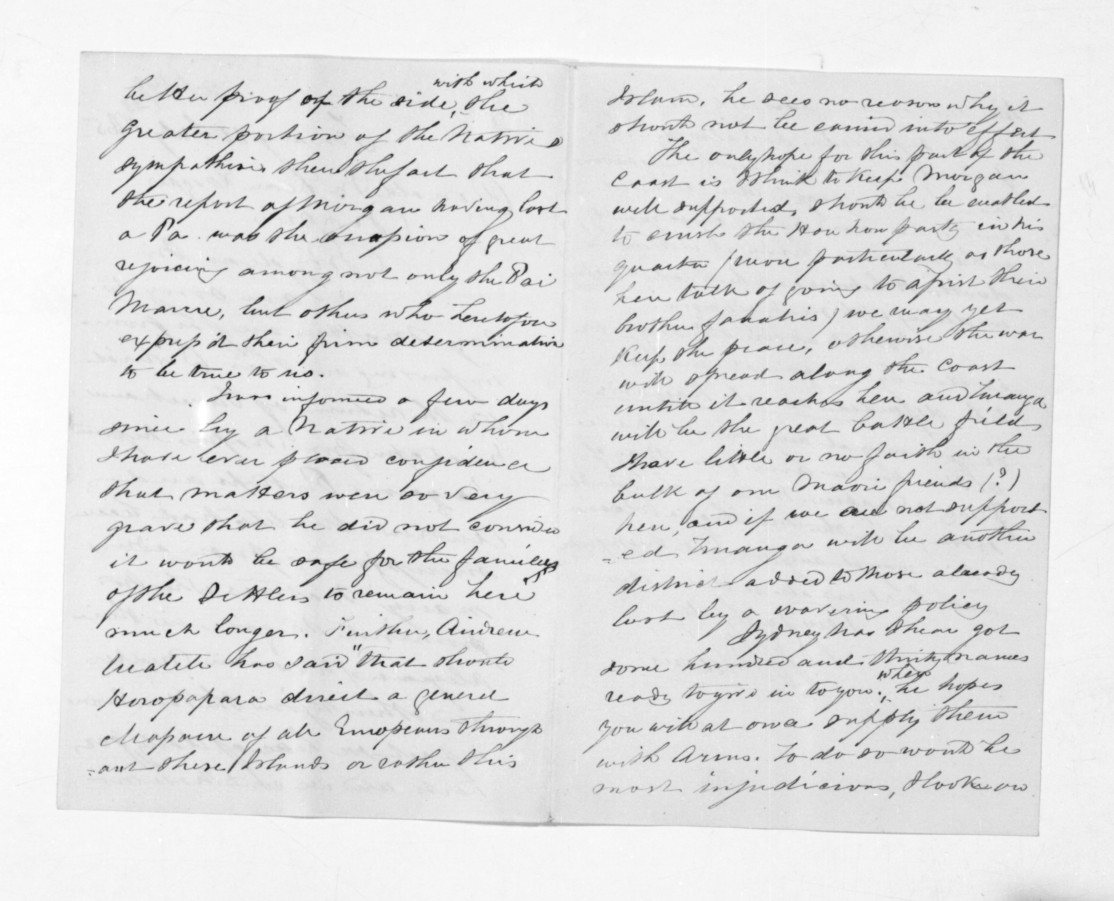 better proof of the side, with which the
greater portion of the Natives
sympathise then the fact that
the report of Morgan having lost
a Pa. was the occasion of great
rejoicing among not only the Pai
Marire, but others who heretofore
express'd their firm determination
to be true to us.
I was informed a few days
since by a Native in whom
I have ever placed confidence
that matters were so very
grave that he did not consider
it would be safe for the families
of the Settlers to remain here
much longer. Further, Andrew
has said "that should
Horopapara direct a general
of all Europeans through
=out these Islands or rather this
Island, he sees no reason why it
should not be carried into effect
The only hope for this part of the
Coast is I think to keep Morgan
well supported, should he be enabled
to crush the Hau hau party in his
quarter (more particularly as those
here talk of going to assist their
brother fanatics) we may yet
keep the peace, otherwise the war
will spread along the Coast
until it reaches here and Turanga
will be the great battle field,
I have little or no faith in the
bulk of our Maori friends (?)
here, and if we are not support
=ed Turanga will be another
district added to those already
lost by a wavering policy
Sydney has I hear got
some hundred and thirty names
ready to give in to you, when he hopes
you will at once supply them
with Arms. To do so would be
most injudicious, I look on